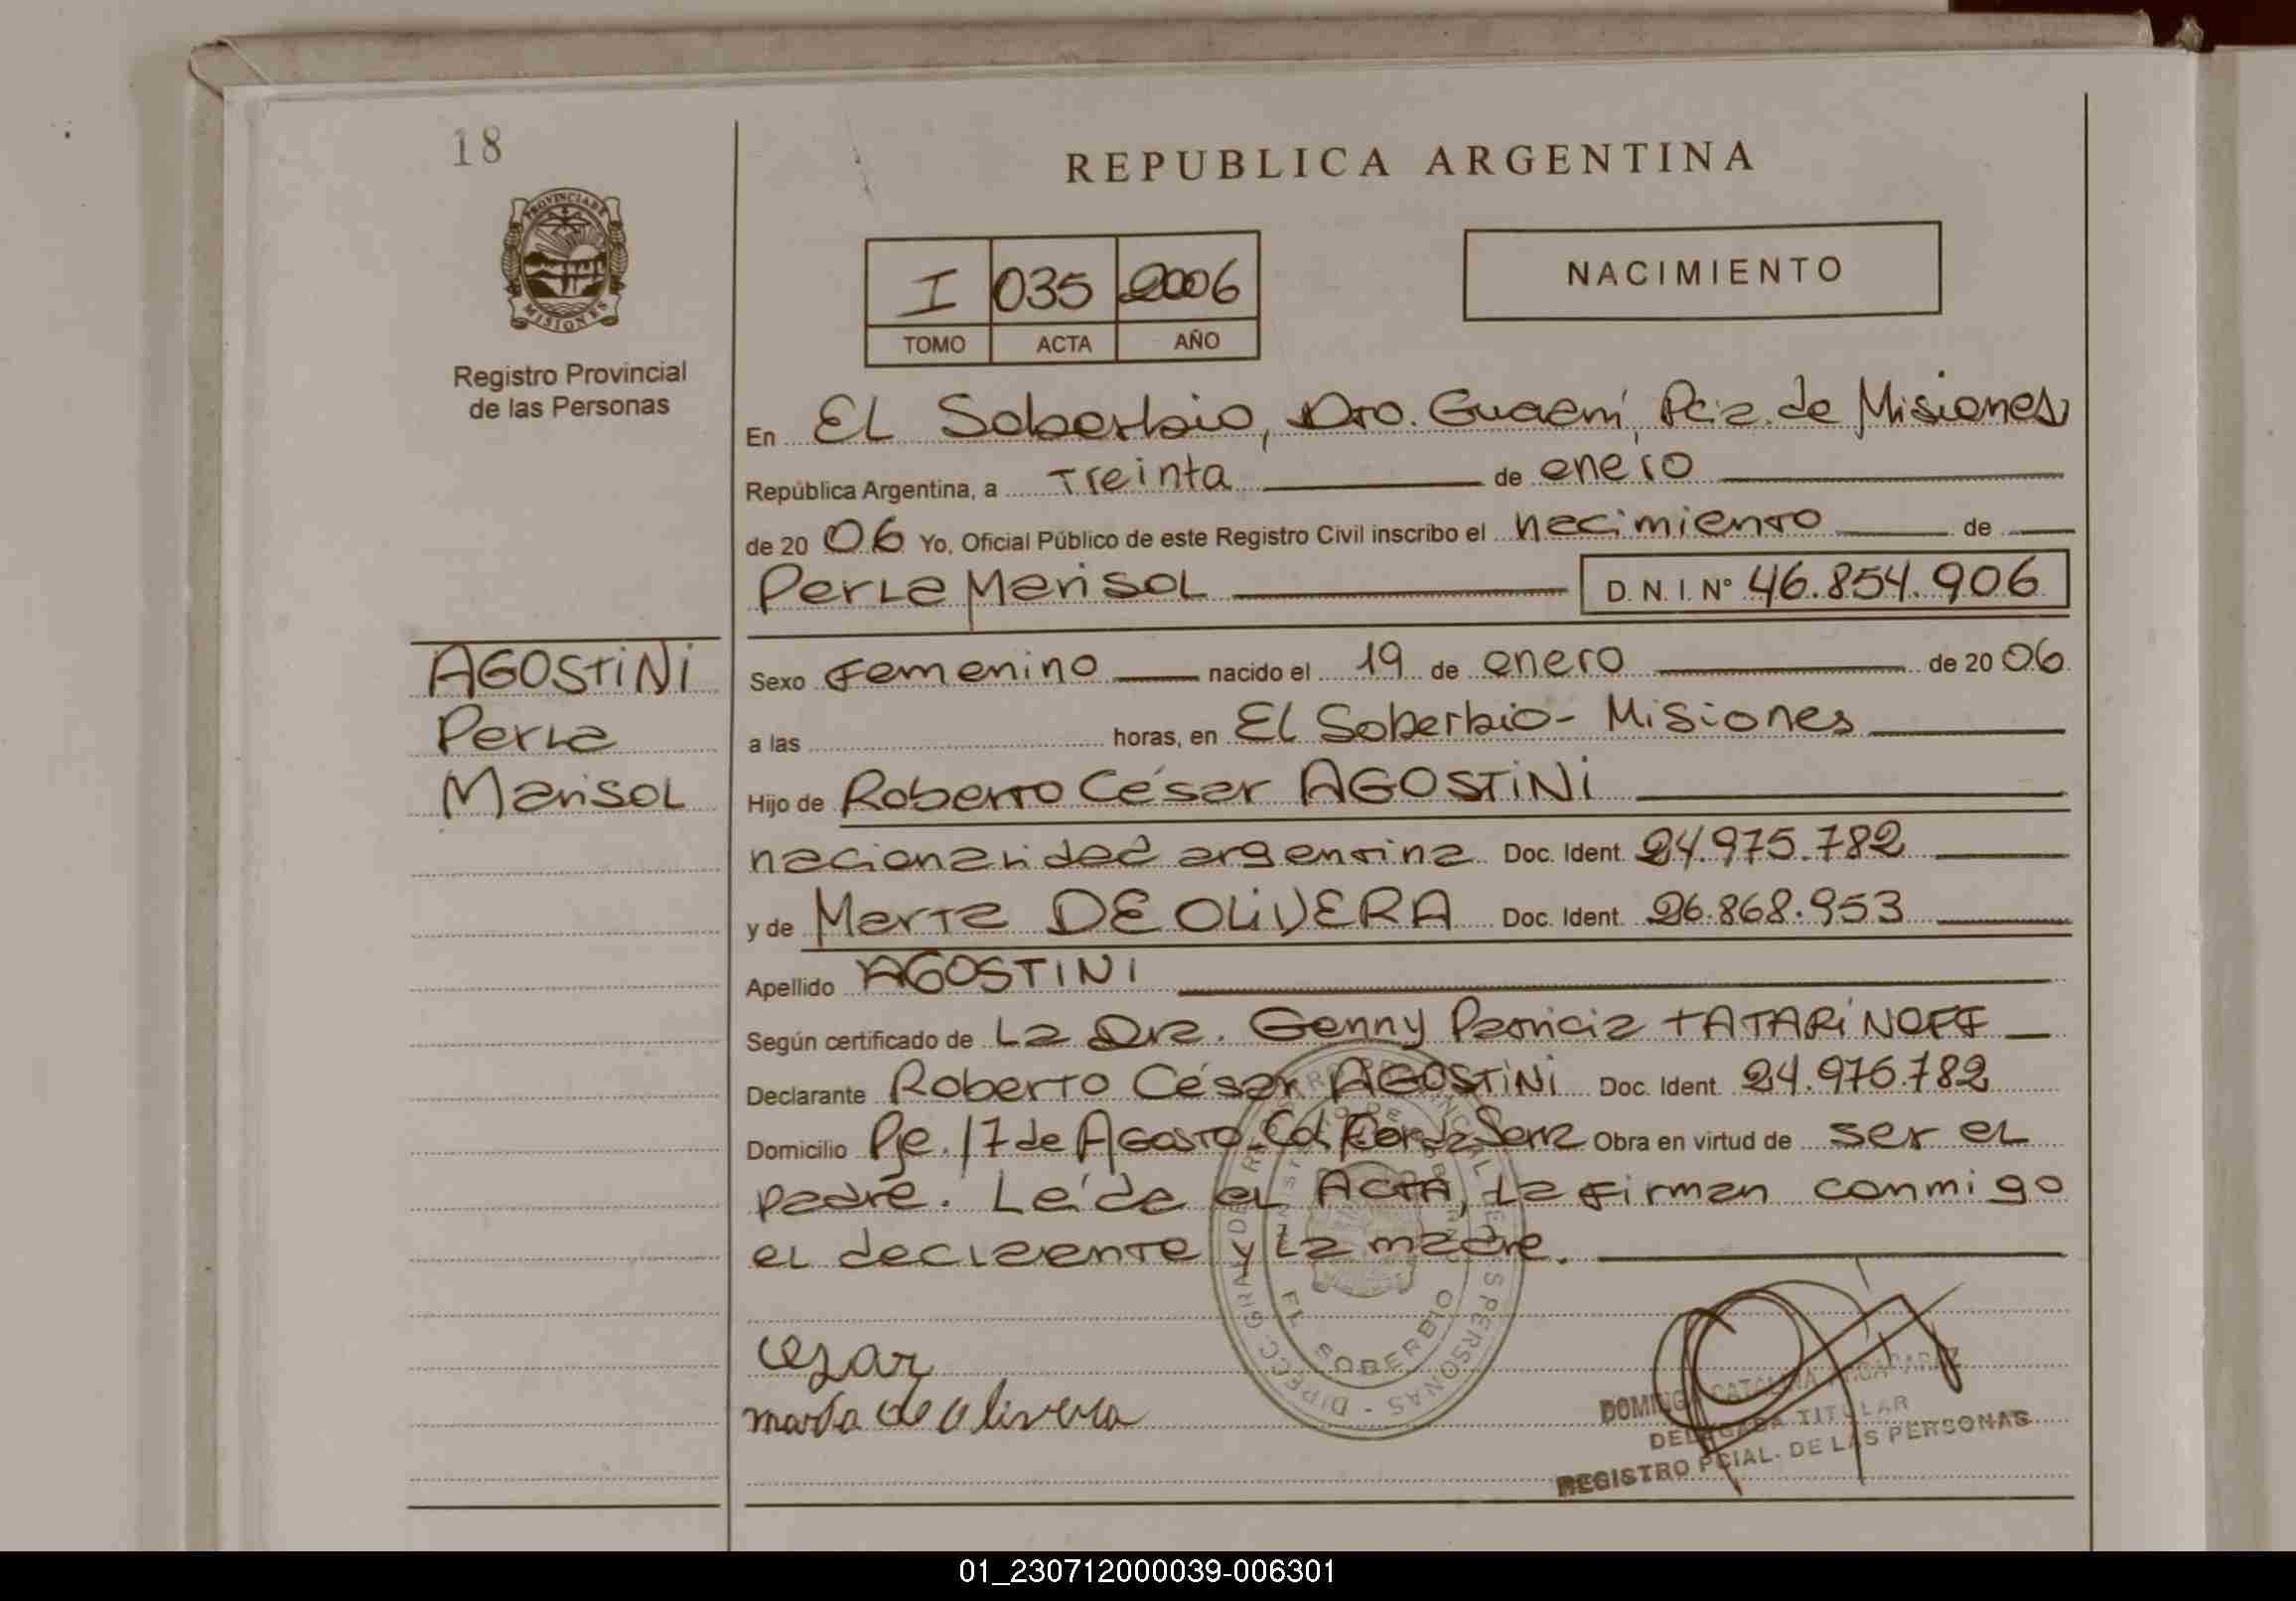 18
PROVINCIA DE
MISIONES
Registro Provincial
de las Personas
REPUBLICA ARGENTINA
I 035 2006
TOMO ACTA AÑO
NACIMIENTO
En EL Soberbio, Dto. Guaraní, Pcia. de Misiones
República Argentina, a Treinta de enero
de 2006 Yo, Oficial Público de este Registro Civil inscribo el nacimiento de
Perla Marisol D. N. I. Nº 46.854.906
AGOSTiNi
Perla
Marisol
Sexo Femenino nacido el 19 de enero de 2006
a las horas, en El Soberbio - Misiones
Hijo de Roberto César AGOSTiNi
nacionalidad argentina Doc. Ident. 24.975.782
y de Marta DE OLiVERA Doc. Ident. 26.868.953
Apellido AGOSTINI
Según certificado de La Dra. Genny Patricia TATARiNOFF
Declarante Roberto César AGOSTiNi Doc. Ident. 24.975.782
Domicilio Pje. 17 de Agosto Col. Sera Obra en virtud de ser el
padre. Leída el ACTA, La firman conmigo
el declarante y La madre.
cesar
marta de olivera
EL SOBERBIO
DOMINGA CATALINA
DELEGADA TITULAR
REGISTRO PCIAL. DE LAS PERSONAS
01_230712000039-006301